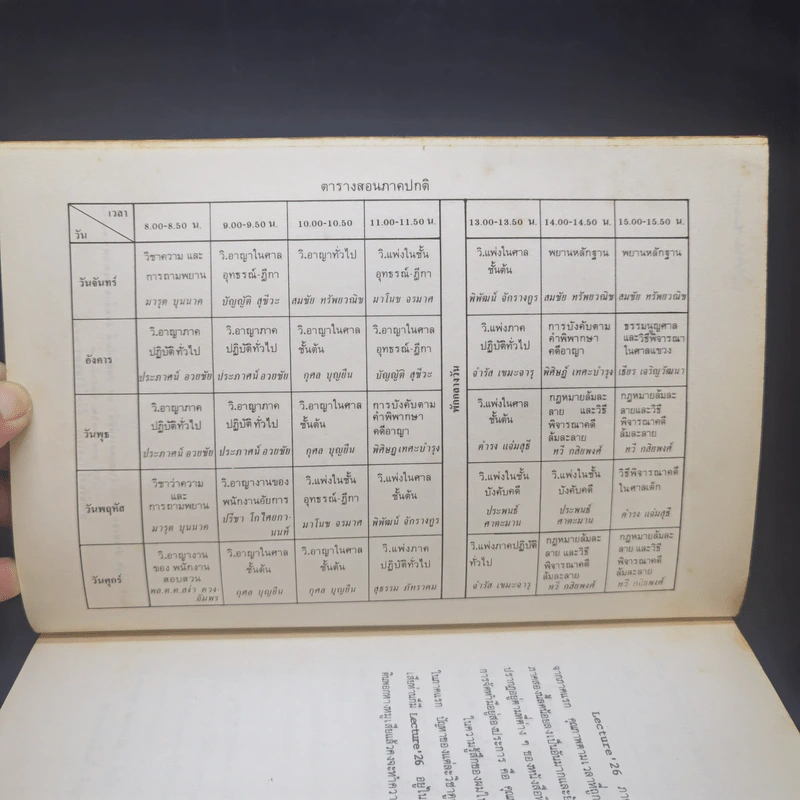 ตารางสอนภาคปกติ
เวลา
วัน
8.00-8.50 น.
9.00-9.50 น.
10.00-10.50
11.00-11.50 น.
พักกลางวัน
13.00-13.50 น.
14.00-14.50 น.
15.00-15.50 น.
วันจันทร์
วิชาความ และ
การถามพยาน
มารุต บุนนาค
วิ.อาญาในศาล
อุทธรณ์-ฎีกา
บัญญัติ สุชีวะ
วิ.อาญาทั่วไป
สมชัย ทรัพยวณิช
วิ.แพ่งในชั้น
อุทธรณ์-ฎีกา
มาโนช จรมาศ
วิ.แพ่งในศาล
ชั้นต้น
พิพัฒน์ จักรางกูร
พยานหลักฐาน
สมชัย ทรัพยวณิช
พยานหลักฐาน
สมชัย ทรัพยวณิช
อังคาร
วิ.อาญาภาค
ปฏิบัติทั่วไป
ประภาศน์ อวยชัย
วิ.อาญาภาค
ปฏิบัติทั่วไป
ประภาศน์ อวยชัย
วิ.อาญาในศาล
ชั้นต้น
กุศล บุญยืน
วิ.อาญาในศาล
อุทธรณ์-ฎีกา
บัญญัติ สุชีวะ
วิ.แพ่งภาค
ปฏิบัติทั่วไป
จำรัส เขมะจารุ
การบังคับตาม
คำพิพากษา
คดีอาญา
พิศิษฏ์ เทศะบำรุง
ธรรมนูญศาล
และวิธีพิจารณา
ในศาลแขวง
เธียร เจริญวัฒนา
วันพุธ
วิ.อาญาภาค
ปฏิบัติทั่วไป
ประภาศน์ อวยชัย
วิ.อาญาภาค
ปฏิบัติทั่วไป
ประภาศน์ อวยชัย
วิ.อาญาในศาล
ชั้นต้น
กุศล บุญยืน
การบังคับตาม
คำพิพากษา
คดีอาญา
พิศิษฏ เทศะบำรุง
วิ.แพ่งในศาล
ชั้นต้น
ดำรง แจ่มสุธี
กฎหมายล้มละ
ลาย และวิธี
พิจารณาคดี
ล้มละลาย
ทวี กสิยพงศ์
กฎหมายล้มละ
ลายและวิธี
พิจารณาคดี
ล้มละลาย
ทวี กสิยพงศ์
วันพฤหัส
วิชาว่าความ
และ
การถามพยาน
มารุต บุนนาค
วิ.อาญางานของ
พนักงานอัยการ
ปรีชา โกไศยกา-
นนท์
วิ.แพ่งในชั้น
อุทธรณ์-ฎีกา
มาโนช จรมาศ
วิ.แพ่งในศาล
ชั้นต้น
พิพัฒน์ จักรางกูร
วิ.แพ่งในชั้น
บังคับคดี
ประพนธ์
ศาตะมาน
วิ.แพ่งในชั้น
บังคับคดี
ประพนธ์
ศาตะมาน
วิธีพิจารณาคดี
ในศาลเด็ก
ดำรง แจ่มสุธี
วันศุกร์
วิ.อาญางาน
ของ พนักงาน
สอบสวน
พล.ต.ต.สง่า ดวง-
อัมพร
วิ.อาญาในศาล
ชั้นต้น
กุศล บุญยืน
วิ.อาญาในศาล
ชั้นต้น
กุศล บุญยืน
วิ.แพ่งภาค
ปฏิบัติทั่วไป
สุธรรม ภัทราคม
วิ.แพ่งภาคปฏิบัติ
ทั่วไป
จำรัส เขมะจารุ
กฎหมายล้มละ
ลาย และวิธี
พิจารณาคดี
ล้มละลาย
ทวี กสิยพงศ์
กฎหมายล้มละ
ลาย และวิธี
พิจารณาคดี
ล้มละลาย
ทวี กสิยพงศ์
Lecture'26
จากภาคแรก คุณภาพตามเวลาที่ถูก
การจัดทำมีอยู่สองประการ คือ
ในความรู้สึกของผมใน
ในภาคแรก ปัญหาของแต่ละวิชา
Lecture'26 อยู่ใน